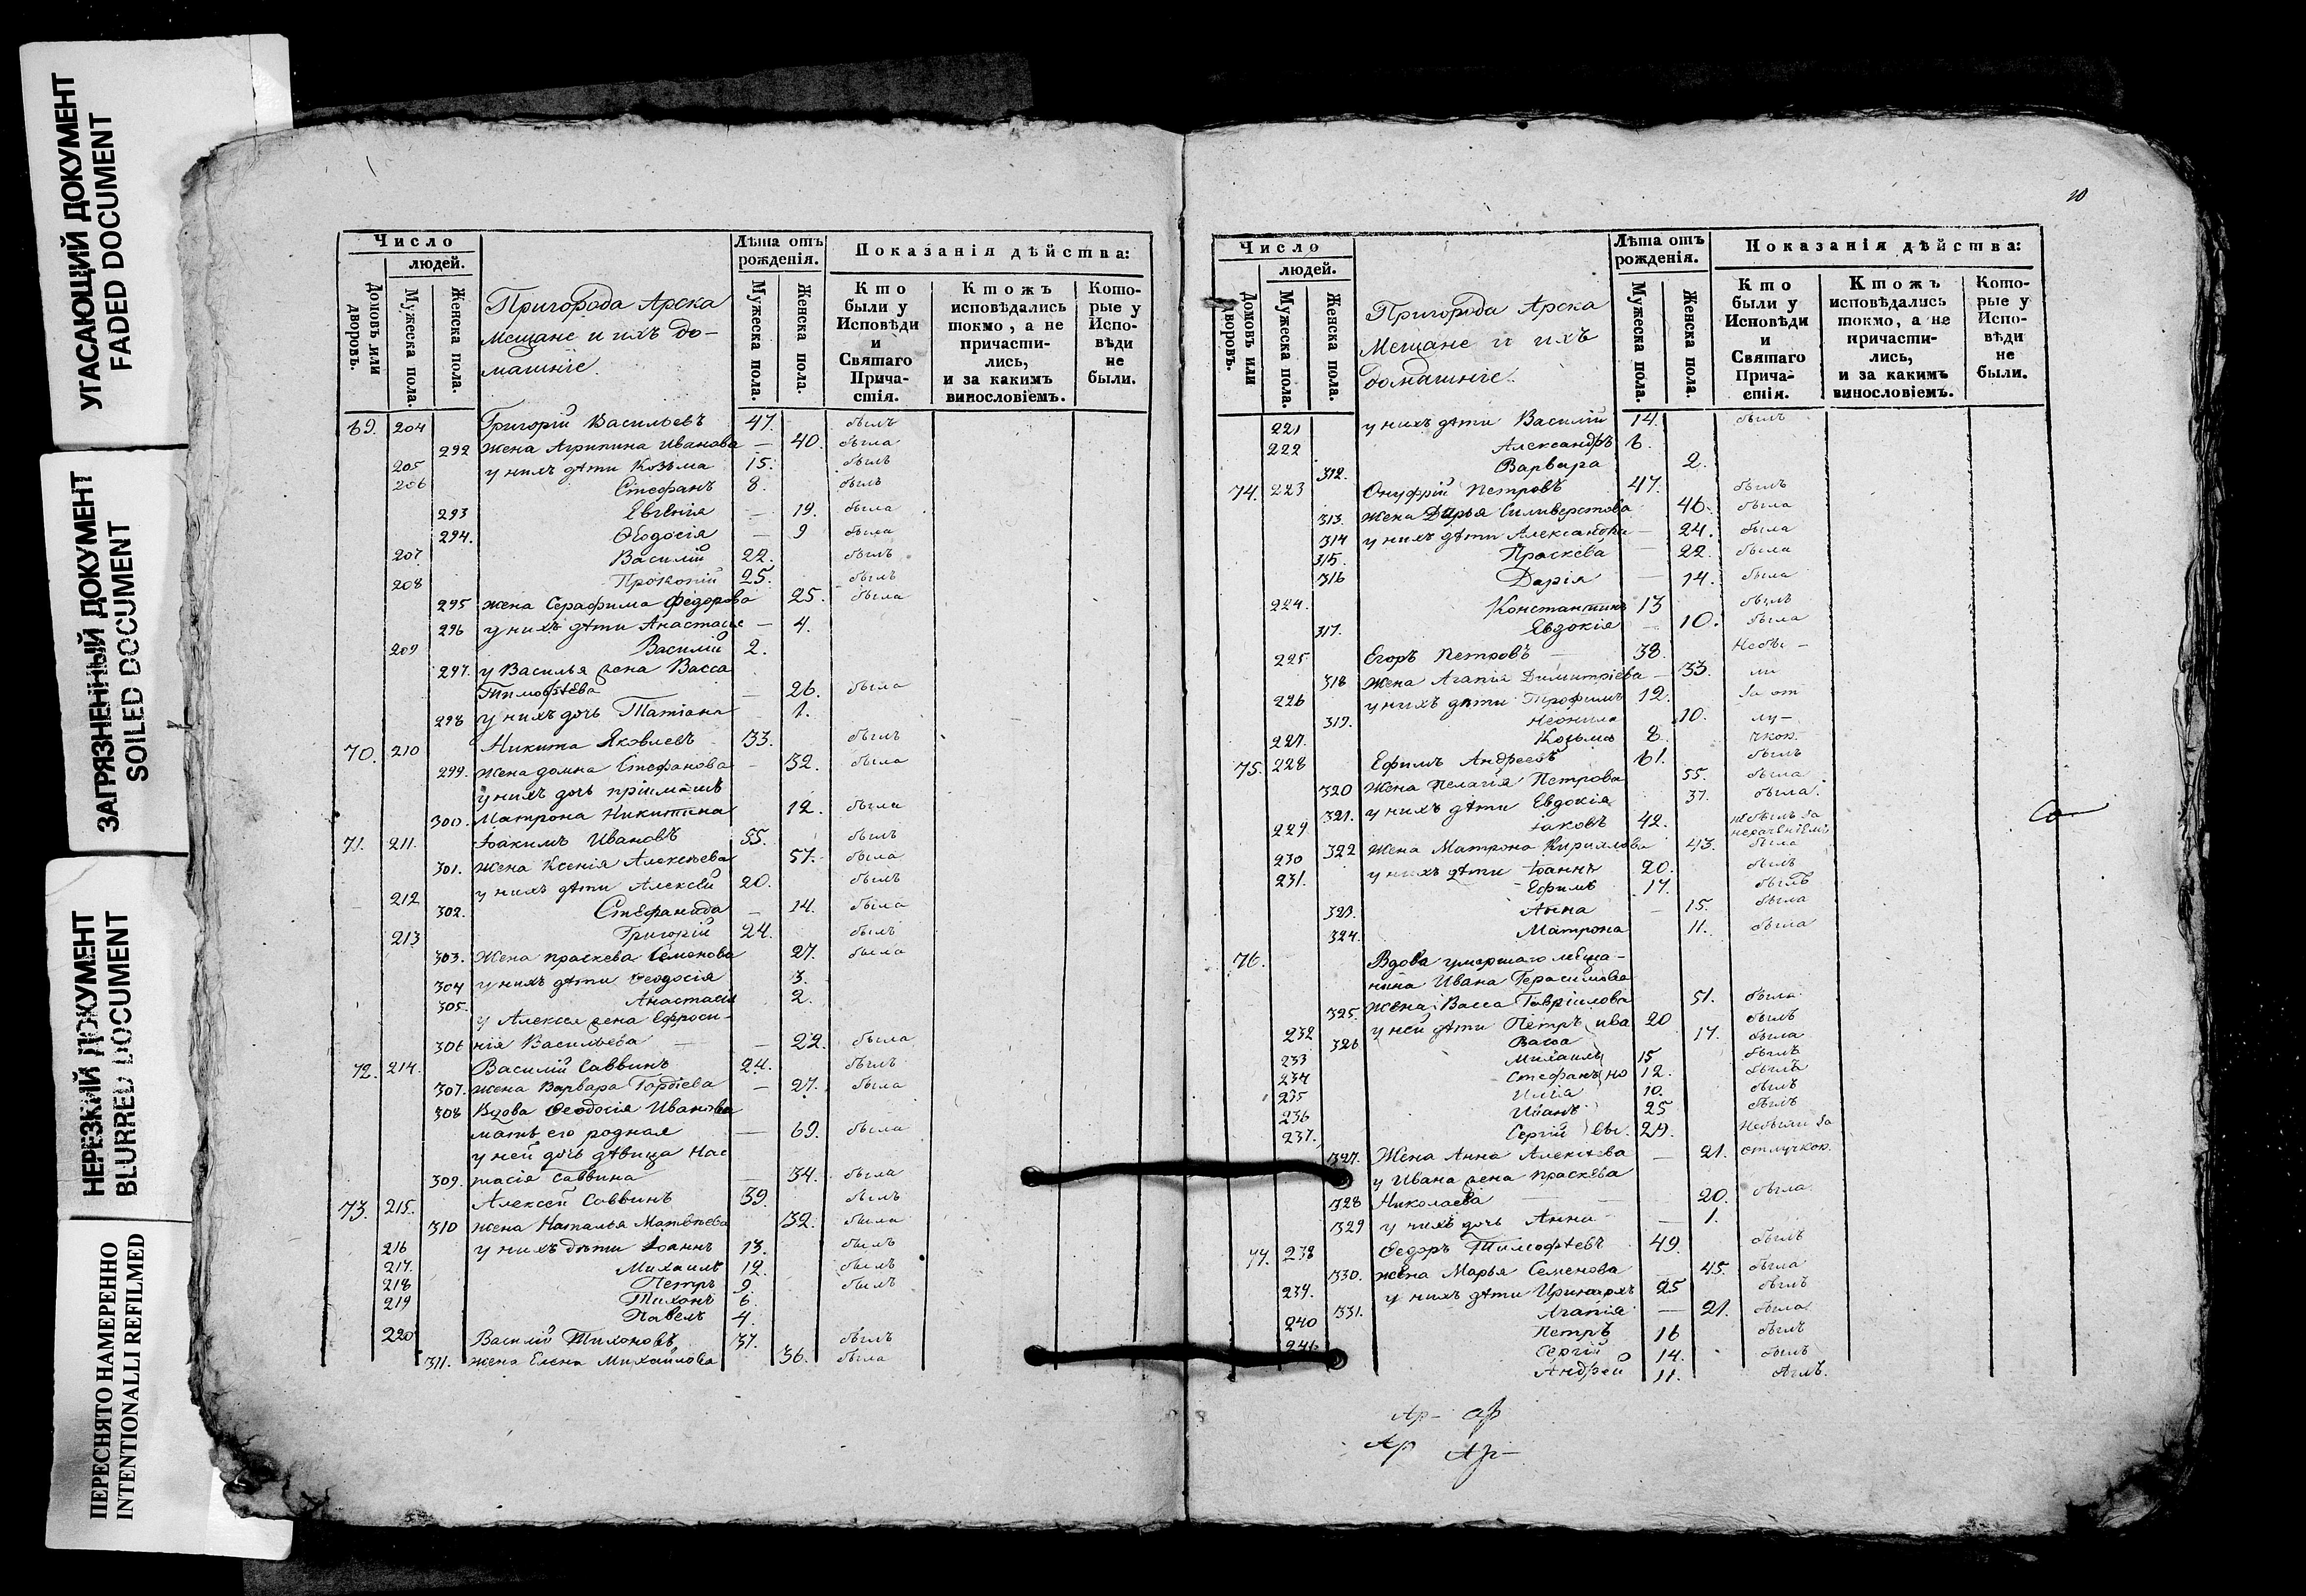 УГАСАЮЩИЙ ДОКУМЕНТ
FADED DOCUMENT
ЗАГРЯЗНЕННЫЙ ДОКУМЕНТ
SOILED DOCUMENT
НЕРЕЗКИЙ ДОКУМЕНТ
BLURRED DOCUMENT
ПЕРЕСНЯТО НАМЕРЕННО
INTENTIONALLI REFILMED
Число
людей.
Домовъ или дворовъ.
Мужеска пола.
Женска пола.
Пригорода Арска
мещане и ихъ до-
машнiе.
Лѣта отъ рожденiя.
Мужеска пола.
Женска пола.
Показанiя дѣйства:
Кто были у Исповѣди и Святаго Прича-стiя.
Ктожъ исповѣдались токмо, а не причасти-лись, и за какимъ винословiемъ.
Кото-рые у Испо-вѣди не были.
69. 204 Григорiй Васильевъ 47. былъ
292 жена Агрипина Иванова — 40. была
205 у нихъ дѣти Козьма 15. былъ
206 Стефанъ 8. былъ
293 Евгенiя — 19. была
294. Ѳеодосiя — 9 была
207 Василiй 22. былъ
208 Прокопiй 25. былъ
295 жена Серафима Федорова 25. была
296 у нихъ дѣти Анастасiя — 4.
209 Василiй 2.
297. у Василья жена Васса
Тимофѣева — 26. была
298 у нихъ дочь Татiана 1.
70. 210 Никита Яковлевъ 33. былъ
299. жена домна Стефанова — 32. была
у нихъ дочь прiимашъ
300. Матрона Никитина 12. была
71. 211. Iоакимъ Ивановъ 55. былъ
301. жена Ксенiя Алексѣева 57. была
212 у нихъ дѣти Алексѣй 20. былъ
302. Стефанида — 14. была
213 Григорiй 24. былъ
303. Жена праскева Семенова 27. была
304 у нихъ дѣти Ѳеодосiя 3.
305. Анастасiя 2.
у Алексея жена Ефроси-
306 нiя Васильева — — 22. была
72. 214. Василiй Саввинъ 24. былъ
307. жена Варвара Гордiева — 27. была
308 Вдова Ѳеодосiя Иванова
мать его родная — 69. была
у ней дочь дѣвица Нас
309. тасiя Саввина — 34. была
73. 215. Алексей Саввинъ 39. былъ
310 жена Наталья Матвѣева 32. была
216 у нихъ дѣти Iоаннъ 13. былъ
217. Михаилъ 12. былъ
218 Петръ 9. былъ
219 Тихонъ 6.
Павелъ 4.
220 Василiй Тихоновъ 37. былъ
311. жена Елена Михайлова 36. была
10
Число
людей.
Домовъ или дворовъ.
Мужеска пола.
Женска пола.
Пригорода Арска
Мещане и ихъ
домашнiе.
Лѣта отъ рожденiя.
Мужеска пола.
Женска пола.
Показанiя дѣйства:
Кто были у Исповѣди и Святаго Прича-стiя.
Ктожъ исповѣдались токмо, а не причасти-лись, и за какимъ винословiемъ.
Кото-рые у Испо-вѣди не были.
221 у нихъ дѣти Василiй 14. былъ
222 Александръ 6.
312. Варвара 2.
74. 223 Онуфрiй Петровъ 47. былъ
313. жена Дарья Силиверстова 46. была
314 у нихъ дѣти Александра — 24. была
315. Праскева — 22. была
316 Дарiя — 14. была
224. Константинъ 13 былъ
317. Евдокiя — 10. была
225 Егоръ Петровъ — 38. Небы-
318 Жена Агапiя Димитрiева — 33. ли
226 у нихъ дѣти Трофимъ 12. за от
319. Неонила 10. лу-
227. Козьма 8. чкою.
75. 228 Ефимъ Андреевъ 61. былъ
320 Жена Пелагiя Петрова 55. была
321. у нихъ дѣти Евдокiя 37. была.
229 Iаковъ 42. небылъ за
нераченiемъ
322 Жена Матрона Кирилова 43. была
230 у нихъ дѣти Iоаннъ 20. былъ
231. Ефимъ 17. былъ
323. Анна — 15. была
324. Матрона 11. была
76. Вдова умершаго меща-
нина Ивана Герасимова
325. жена Васса Гаврiилова 51. была
232 у ней дѣти Петръ 20 былъ
326 17. была
233 Михаилъ 15 былъ
234 Стефанъ 12. былъ
235 Илiя 10. былъ
236 Иванъ 25 былъ
237. Сергiй Небыли за
327. Жена Анна Алексѣева — 21. отлучкою.
у Ивана жена праскева
328 Николаева — 20. была
329 у нихъ дочь Анна — 1.
77. 238 Ѳедоръ Тимофѣевъ 49. былъ
330. жена Марья Семенова 45. была
239. у нихъ дѣти Иринархъ 25 былъ
331. Агапiя — 21. была
240 Петръ 16 былъ
241 Сергiй 14. былъ
Андрей 11. былъ.
Ар- ар
Ар Ар-